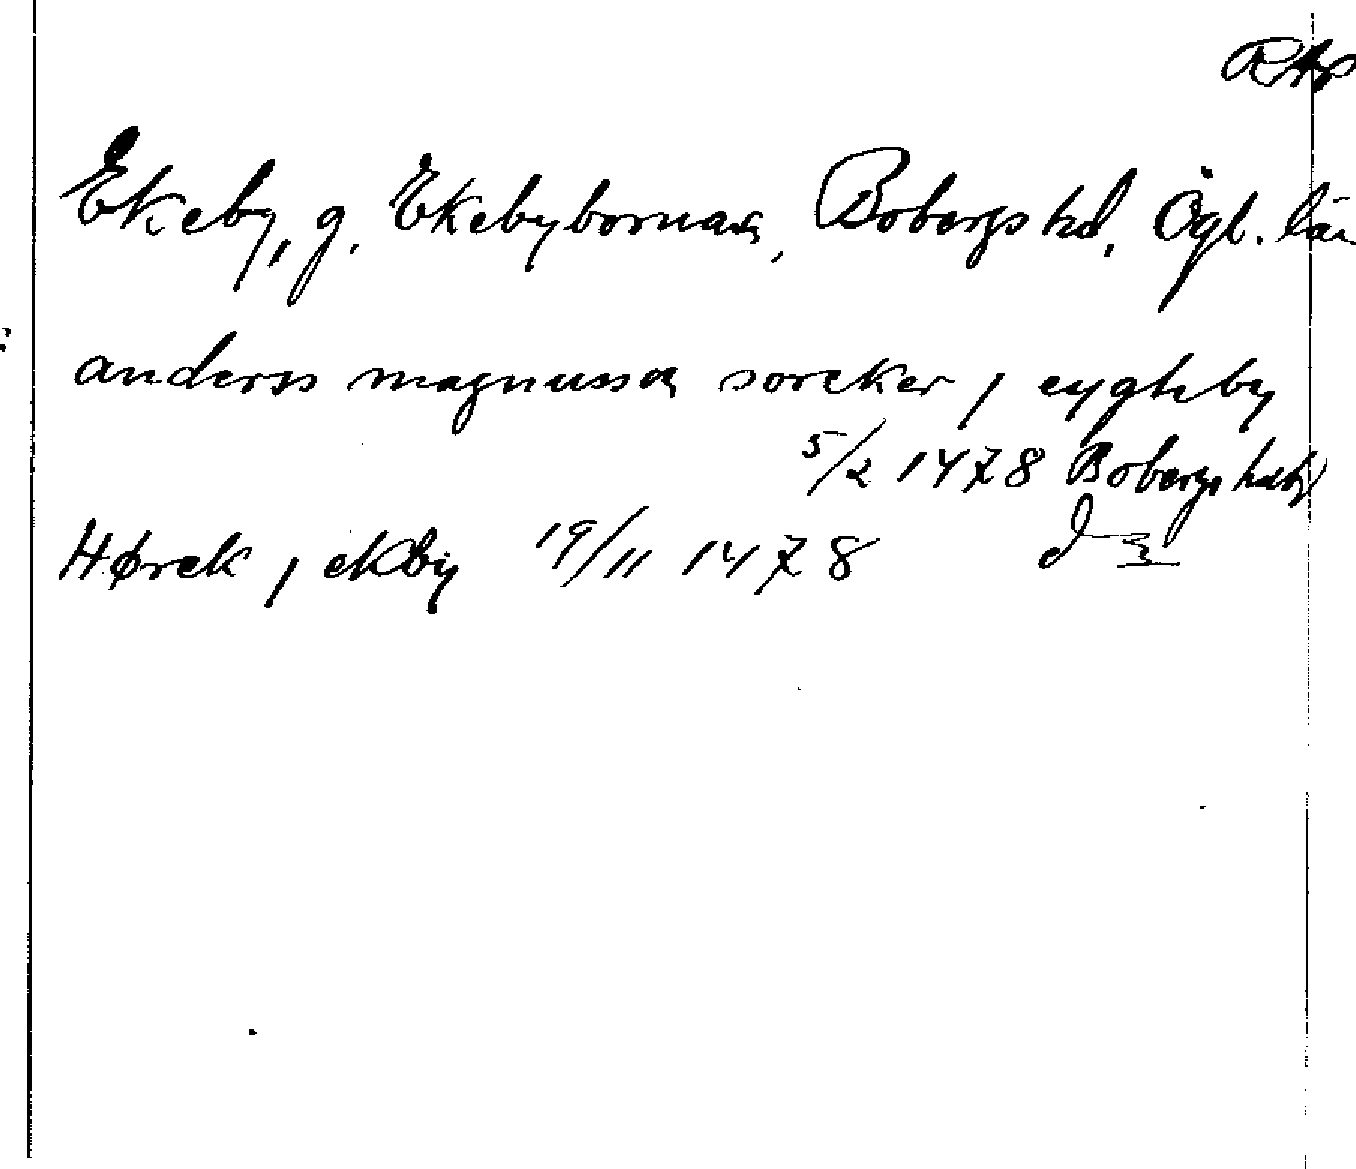 RAp
Ekeby, g. Ekebyborna sn, Bobergs hd, Ögl. län
anders magnusson sorcker j eygheby
5/2 1478 Bobergs hd
Hørek j ekby 19/11 1478